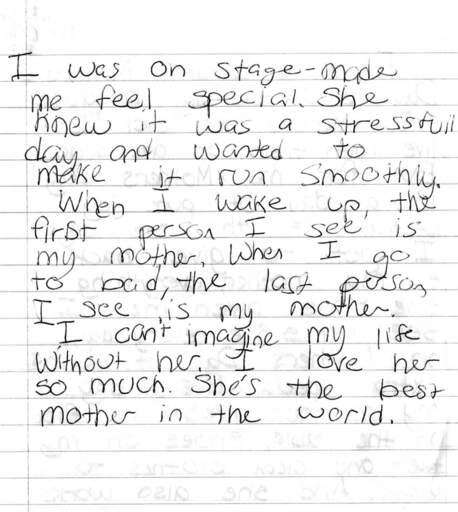 I was on stage-made
me feel special. She
knew it was a stressfull
day and wanted to
make it run smoothly.
When I wake up, the
first person I see is
my mother. When I go
to bad, the last person
I see is my mother.
I can't imagine my life
without her. I love her
so much. She's the best
mother in the world.